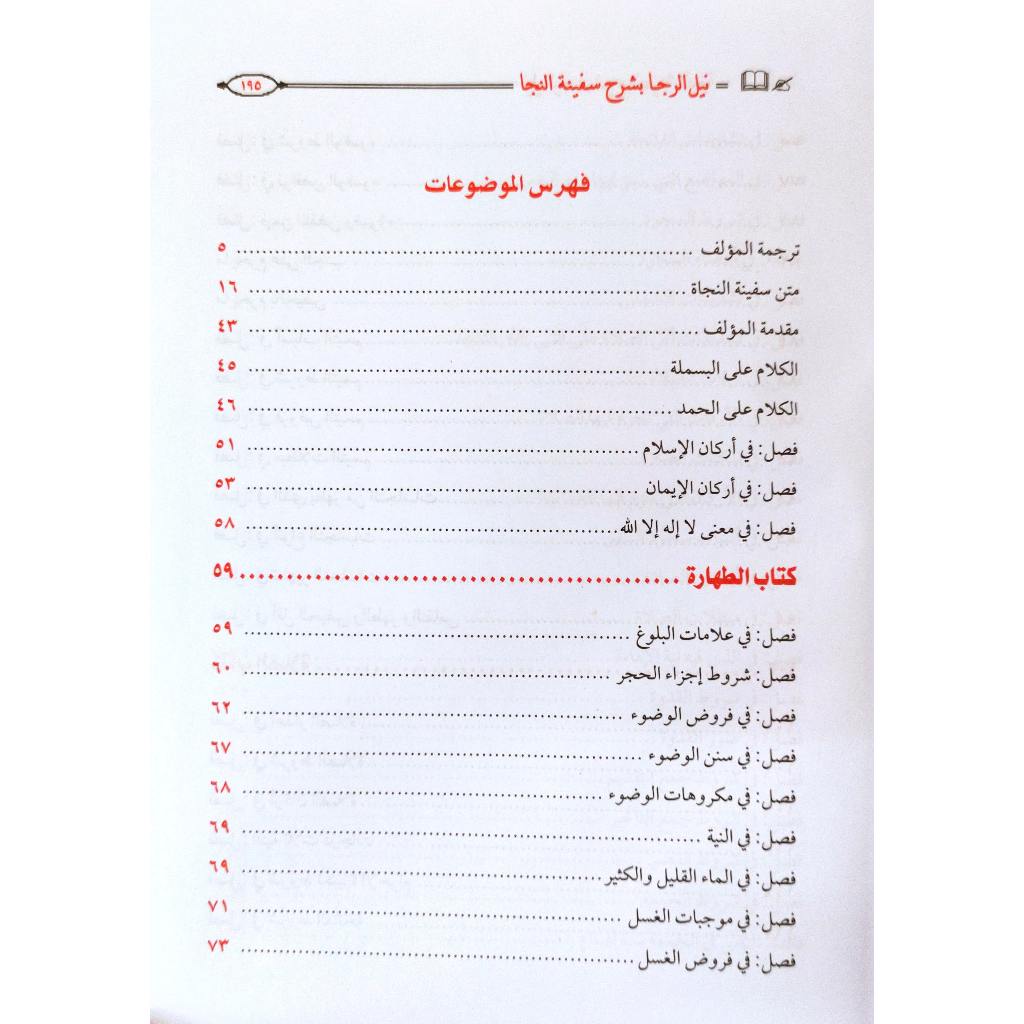 نيل الرجا بشرح سفينة النجا = ١٩٥
فهرس الموضوعات
ترجمة المؤلف ........ ٥
متن سفينة النجاة ........ ١٦
مقدمة المؤلف ........ ٤٣
الكلام على البسملة ........ ٤٥
الكلام على الحمد ........ ٤٦
فصل: في أركان الإسلام ........ ٥١
فصل: في أركان الإيمان ........ ٥٣
فصل: في معنى لا إله إلا الله ........ ٥٨
كتاب الطهارة ........ ٥٩
فصل: في علامات البلوغ ........ ٥٩
فصل: شروط إجزاء الحجر ........ ٦٠
فصل: في فروض الوضوء ........ ٦٢
فصل: في سنن الوضوء ........ ٦٧
فصل: في مكروهات الوضوء ........ ٦٨
فصل: في النية ........ ٦٩
فصل: في الماء القليل والكثير ........ ٦٩
فصل: في موجبات الغسل ........ ٧١
فصل: في فروض الغسل ........ ٧٣